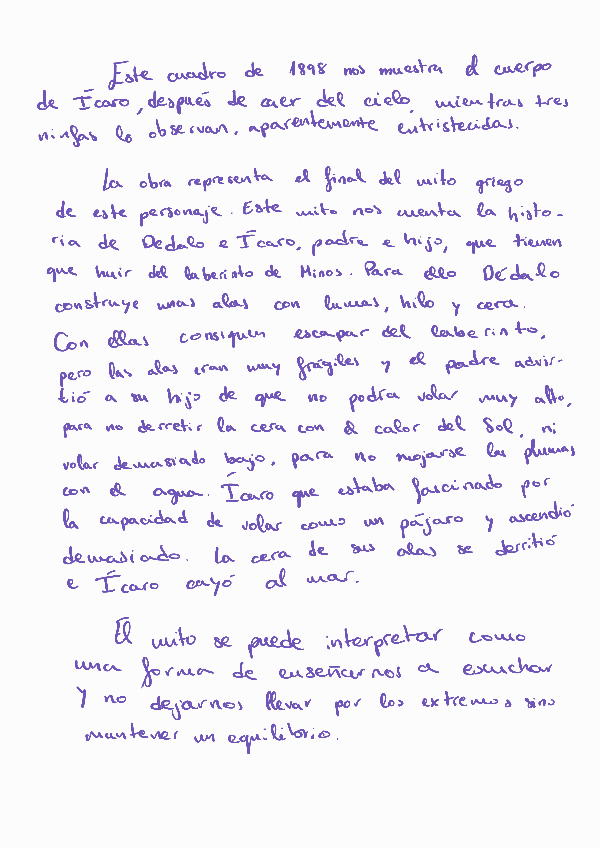 Este cuadro de 1898 nos muestra el cuerpo
de Ícaro, después de caer del cielo, mientras tres
ninfas lo observan, aparentemente entristecidas.
La obra representa el final del mito griego
de este personaje. Este mito nos cuenta la histo-
ria de Dedalo e Ícaro, padre e hijo, que tienen
que huir del laberinto de Minos. Para ello Dédalo
construye unas alas con lumas, hilo y cera.
Con ellas consiguen escapar del laberinto,
pero las alas eran muy frágiles y el padre advir-
tió a su hijo de que no podía volar muy alto,
para no derretir la cera con el calor del Sol, ni
volar demasiado bajo, para no mojarse las plumas
con el agua. Ícaro que estaba fascinado por
la capacidad de volar como un pájaro y ascendió
demasiado. La cera de sus alas se derritió
e Ícaro cayó al mar.
El mito se puede interpretar como
una forma de enseñarnos a escuchar
y no dejarnos llevar por los extremos sino
mantener un equilibrio.